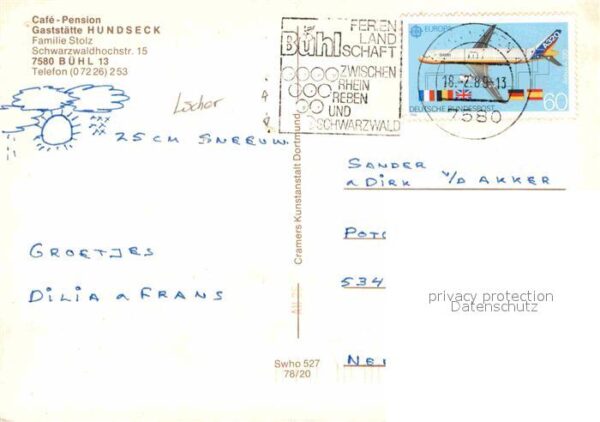 Café - Pension
Gaststätte HUNDSECK
Familie Stolz
Schwarzwaldhochstr. 15
7580 BÜHL 13
Telefon (07226) 253
25 CM SNEEUW
GROETJES
DILIA & FRANS
Cramers Kunstanstalt Dortmund
Swho 527
78/20
Bühl
FERIEN
LAND
SCHAFT
ZWISCHEN
RHEIN
REBEN
UND
SCHWARZWALD
EUROPA
A320
18.-2.89.-13
DEUTSCHE BUNDESPOST
60
7580
SANDER
& DIRK V/D AKKER
534
privacy protection
Datenschutz